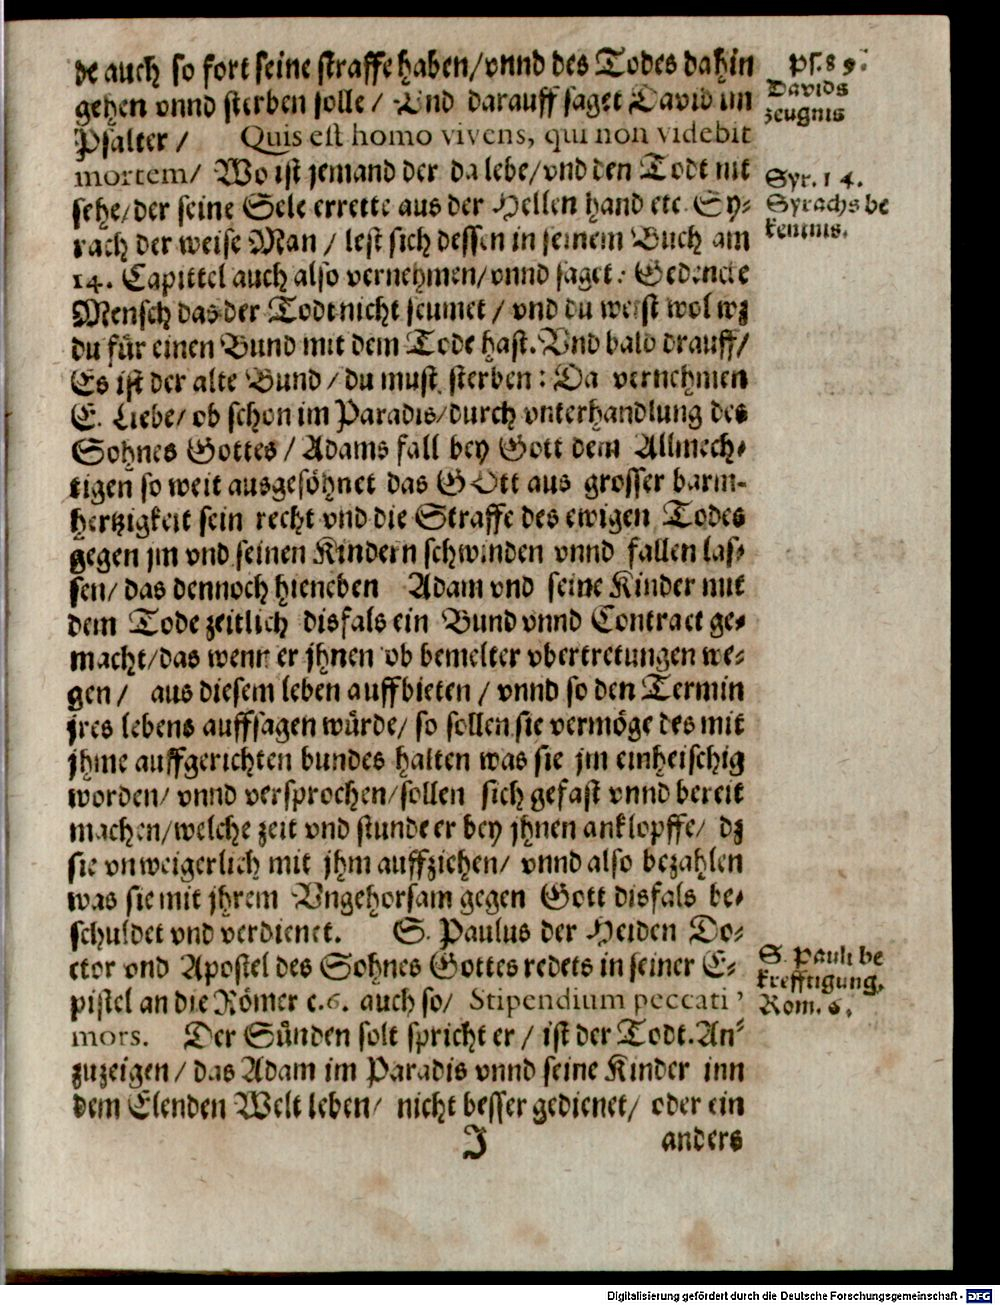 de auch so fort seine straffe haben/vnnd des Todes dahin
gehen vnnd sterben solle/ Vnd darauff saget David im
Psalter/ Quis est homo vivens, qui non videbit
mortem/ Wo ist jemand der da lebe/vnd den Todt nit
sehe/der seine Sele errette aus der Hellen hand etc. Sy-
rach der weise Man/ lest sich dessen in seinem Buch am
14. Capittel auch also vernehmen/vnnd saget: Gedencke
Mensch das der Todt nicht seumet/ vnd du weist wol wz
du für einen Bund mit dem Tode hast. Vnd bald drauff/
Es ist der alte Bund/du must sterben: Da vernehmen
E. Liebe/ ob schon im Paradis/durch vnterhandlung des
Sohnes Gottes/ Adams fall bey Gott dem Allmech-
tigen so weit ausgesöhnet das GOtt aus grosser barm-
hertzigkeit sein recht vnd die Straffe des ewigen Todes
gegen jm vnd seinen Kindern schwinden vnnd fallen las-
sen/ das dennoch hieneben Adam vnd seine Kinder mit
dem Tode zeitlich disfals ein Bund vnnd Contract ge-
macht/das wenn er jhnen ob bemelter vbertretungen we-
gen/ aus diesem leben auffbieten/ vnnd so den Termin
jres lebens auffsagen würde/ so sollen sie vermöge des mit
jhme auffgerichten bundes halten was sie jm einheischig
worden/ vnnd versprochen/sollen sich gefast vnnd bereit
machen/welche zeit vnd stunde er bey jhnen anklopffe/ dz
sie vnweigerlich mit jhm auffziehen/ vnnd also bezahlen
was sie mit jhrem Vngehorsam gegen Gott disfals be-
schuldet vnd verdienet. S. Paulus der Heiden Do-
ctor vnd Apostel des Sohnes Gottes redets in seiner E-
pistel an die Römer c.6. auch so/ Stipendium peccati
mors. Der Sünden solt spricht er/ ist der Todt. An-
zuzeigen/ das Adam im Paradis vnnd seine Kinder inn
dem Elenden Welt leben/ nicht besser gedienet/ oder ein
I anders
Ps. 89.
Davids
zeugnis
Syr. 14.
Syrachs be
kentnis.
S. Pauli be
krefftigung,
Rom. 6.
Digitalisierung gefördert durch die Deutsche Forschungsgemeinschaft - DFG